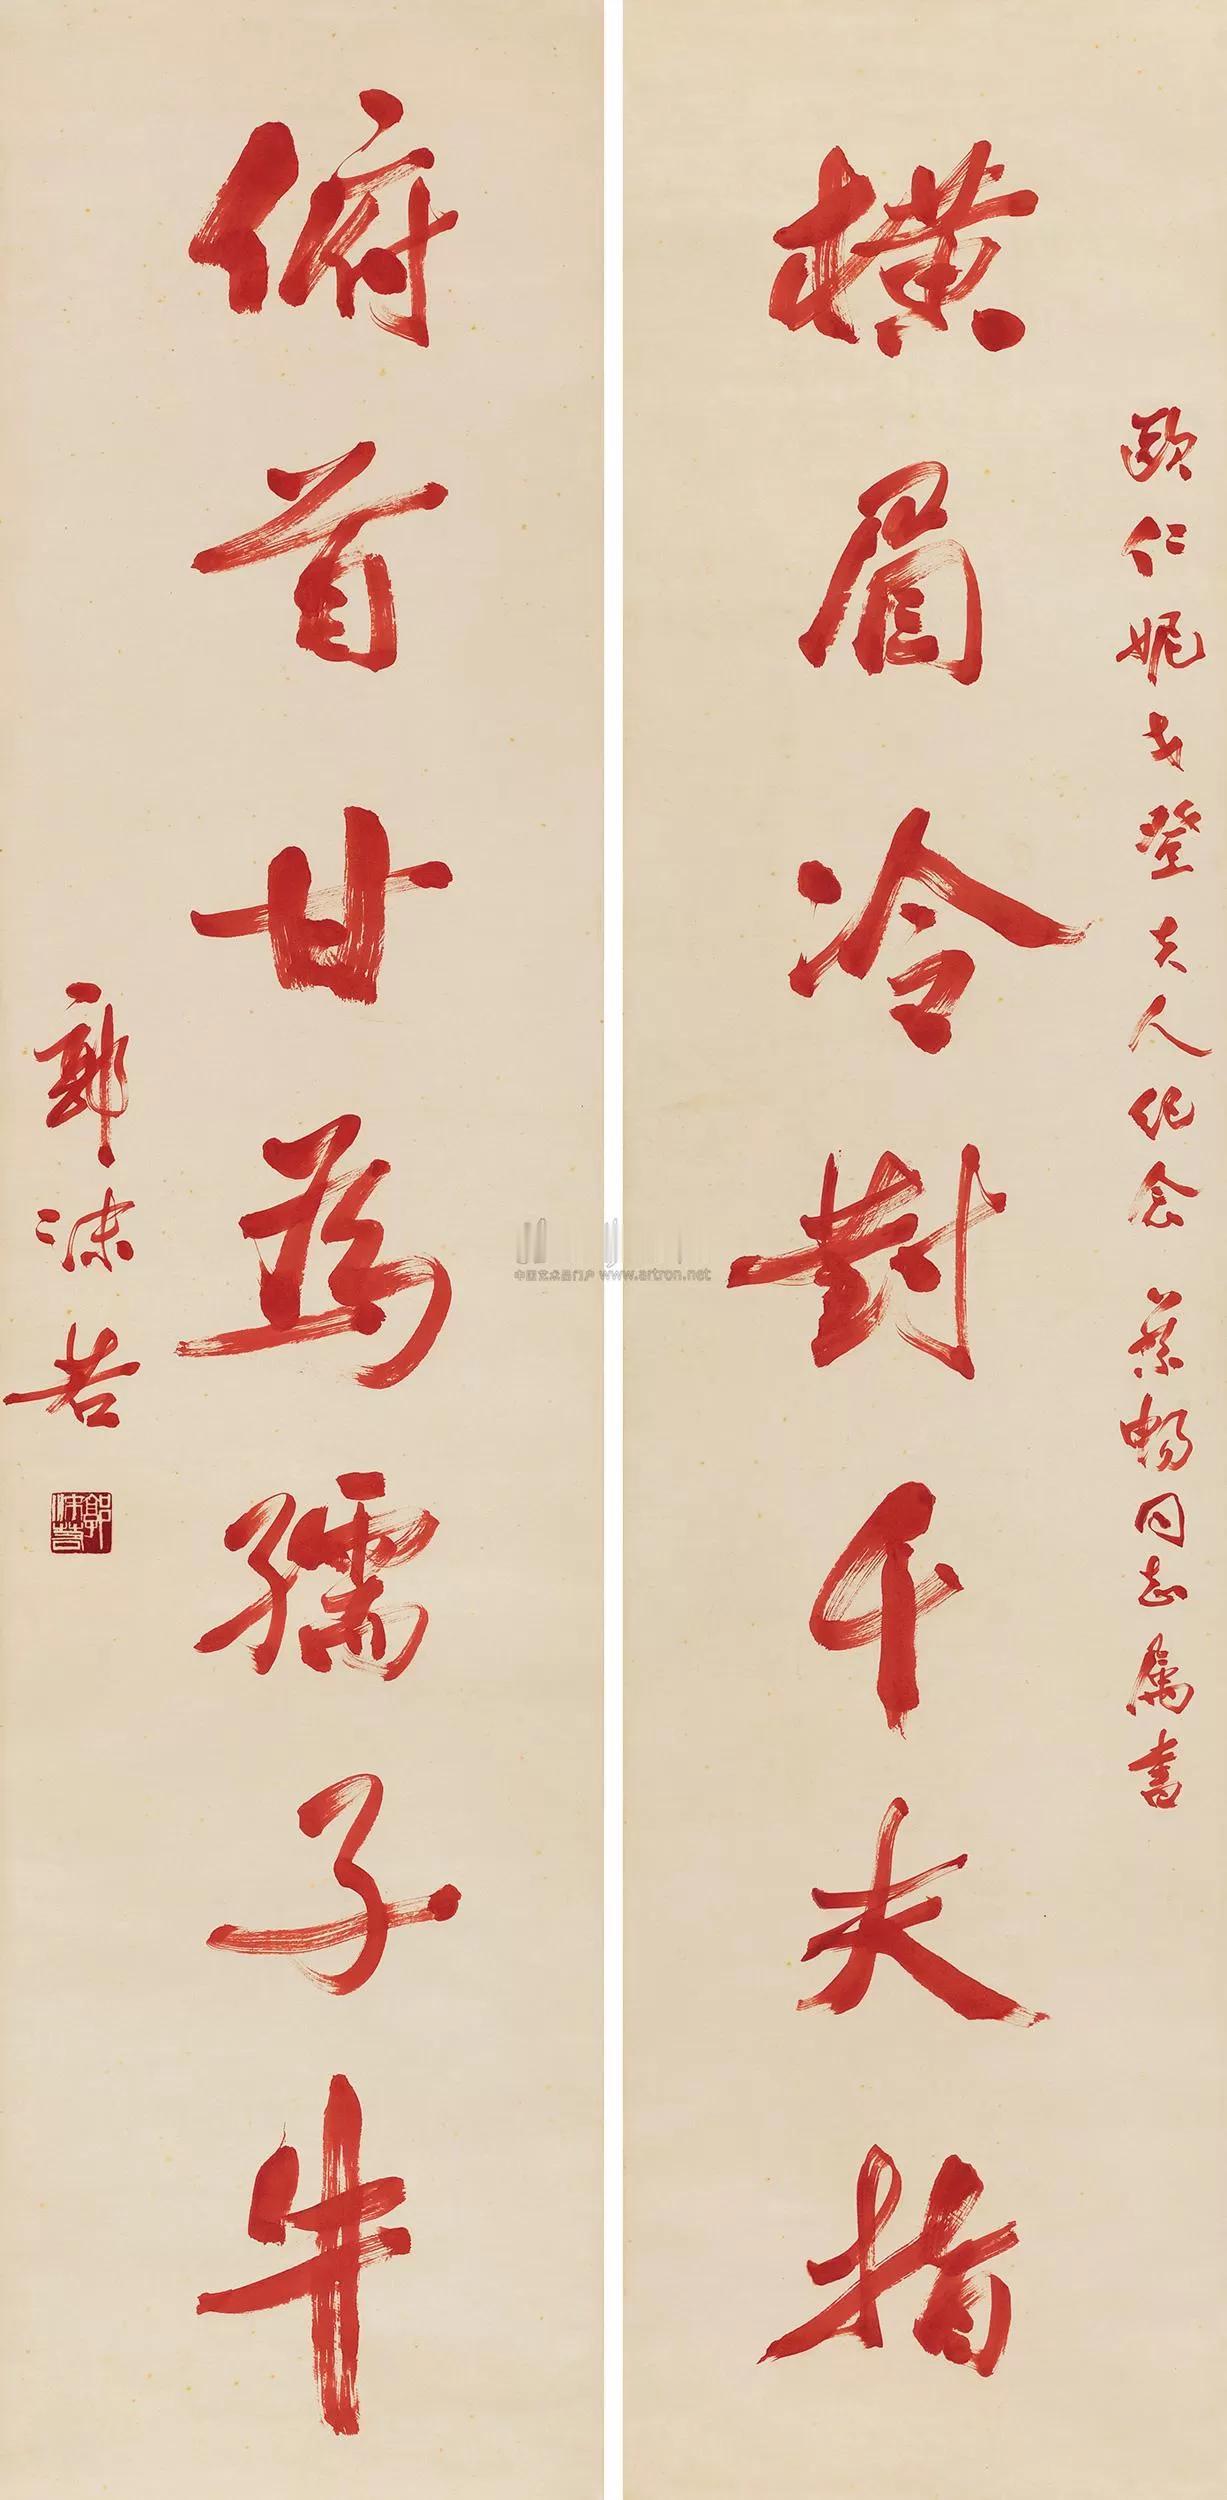 欧仁妮戈登夫人纪念 蔡畅同志属书
横眉冷對千夫指
俯首甘為孺子牛
郭沫若
郭沫若
中国艺术品门户 www.artron.net